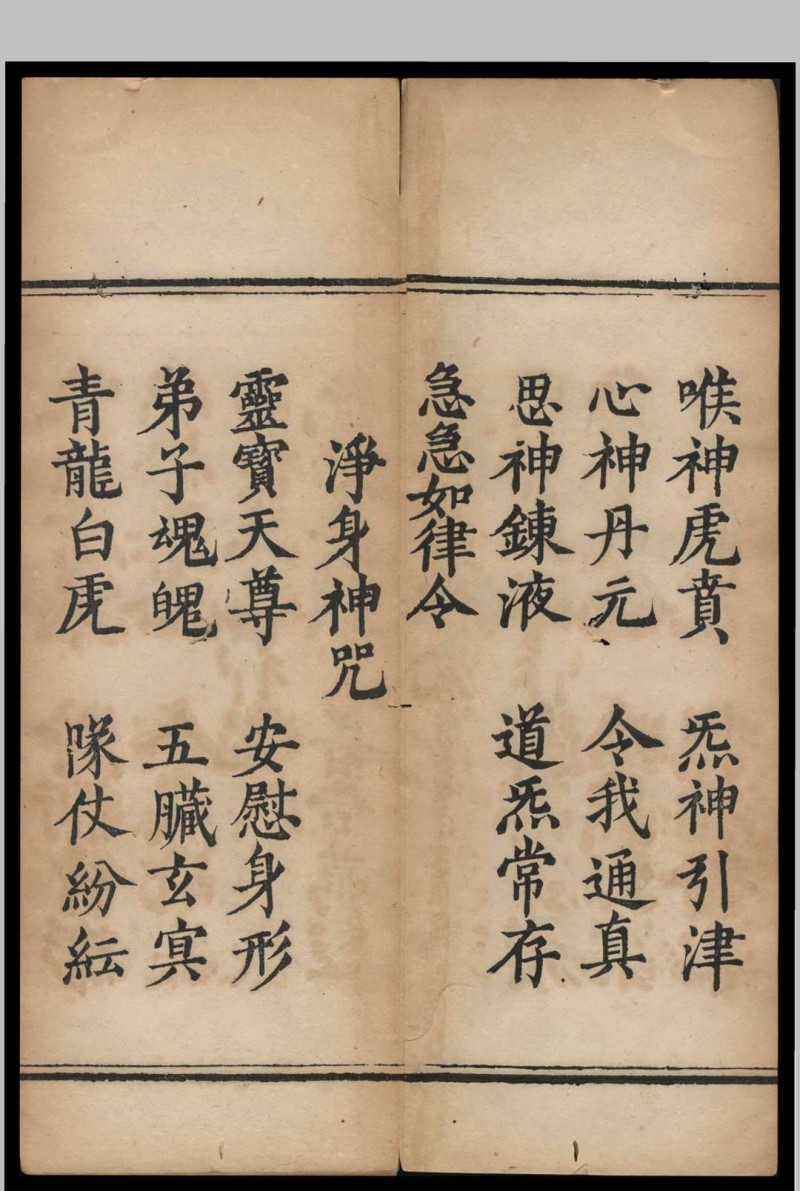 喉神虎賁　炁神引津
心神丹元　令我通真
思神鍊液　道炁常存
急急如律令
淨身神咒
靈寶天尊　安慰身形
弟子魂魄　五臟玄冥
青龍白虎　隊仗紛紜